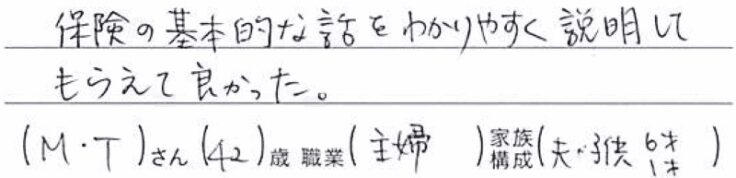 保険の基本的な話をわかりやすく説明して
もらえて良かった。
(M・T)さん(42)歳 職業(主婦 )家族構成(夫・子供 6才 1才 )